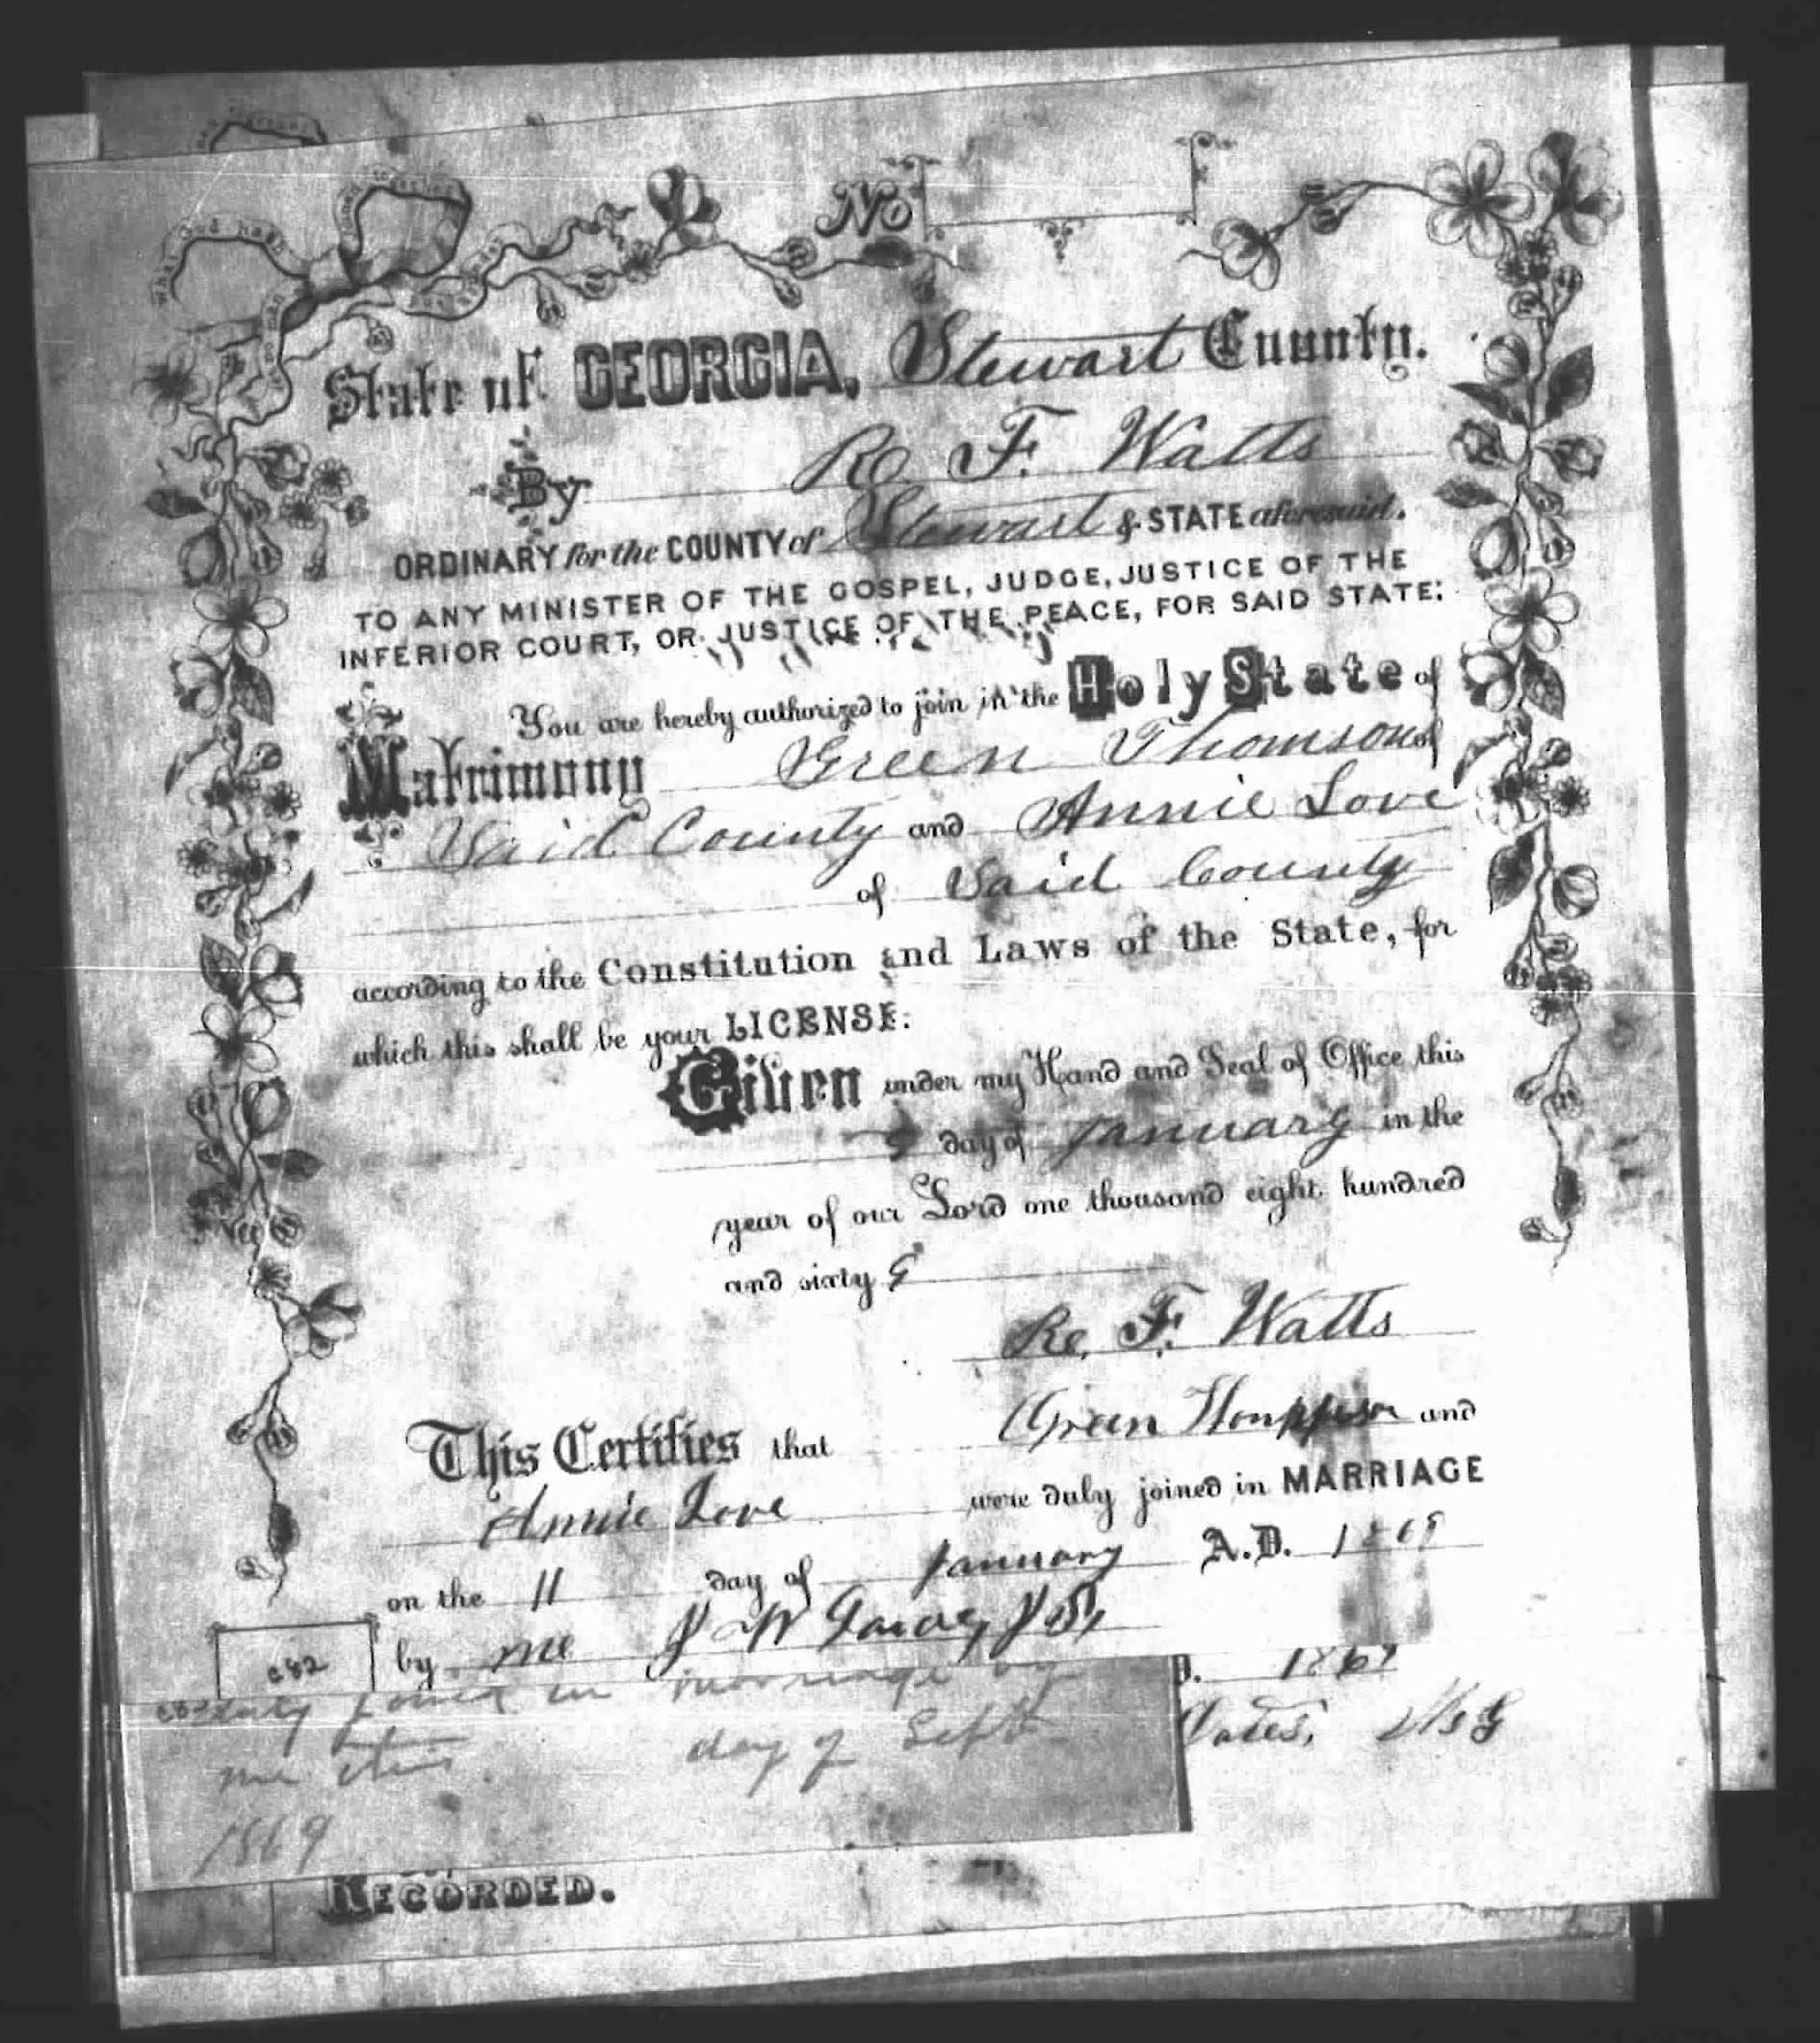 What God hath joined together
let no man
No
State of GEORGIA, Stewart County.
By Ro. F. Watts
ORDINARY for the COUNTY of Stewart & STATE aforesaid.
TO ANY MINISTER OF THE GOSPEL, JUDGE, JUSTICE OF THE
INFERIOR COURT, OR JUSTICE OF THE PEACE, FOR SAID STATE:
You are hereby authorized to join in the Holy State of
Matrimony Green Thomson of
Said County and Annie Love
of Said County
according to the Constitution and Laws of the State, for
which this shall be your LICENSE:
Given under my Hand and Seal of Office this
9 day of January in the
year of our Lord one thousand eight hundred
and sixty 9
Ro. F. Watts
This Certifies that Green Thompson and
Annie Love were duly joined in MARRIAGE
on the 11 day of January A.D. 1869
by me J W
c82
1869
duly joined in marriage by
me this day of Sept
1869
RECORDED.